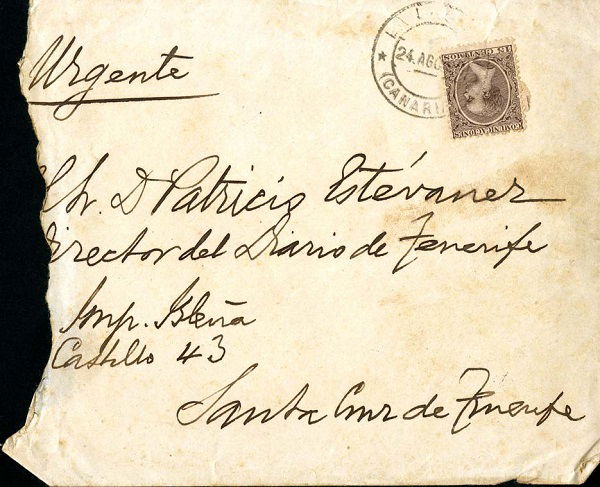 Urgente
24 AGO
(CANARI
15 CENTIMOS
COMUNICACIONES
Sr. D. Patricio Estévanez
Director del Diario de Tenerife
Imp. Isleña
Castillo 43
Santa Cruz de Tenerife